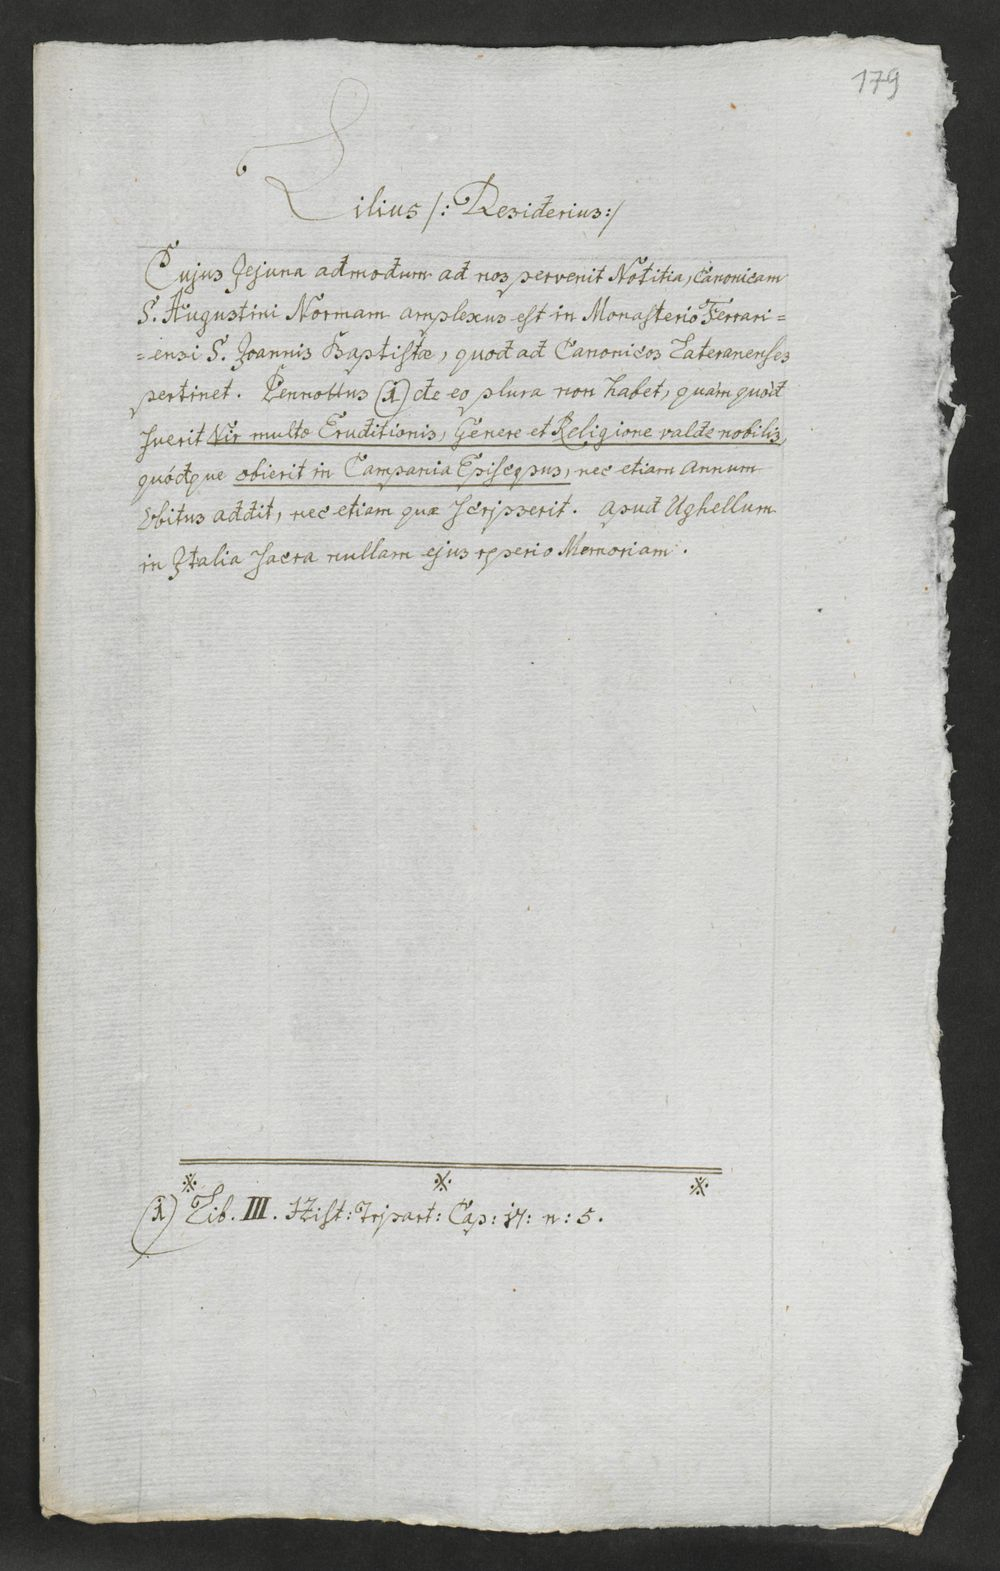 179
Lilius /: Desiderius :/
Cujus Jejuna admodum ad nos pervenit Notitia, Canonicam
S. Augustini Normam amplexus est in Monasterio Ferrari=
=ensi S. Joannis Baptistæ, quod ad Canonicos Lateranenses
pertinet. Pennottus (1) de eo plura non habet, quàm quòd
fuerit Vir multæ Eruditionis, Genere et Religione valde nobilis,
quódque obierit in Campania Episcopus, nec etiam annum
Obitus addit, nec etiam quæ Scripserit. apud Ughellum
in Italia Sacra nullam ejus reperio Memoriam.
(1) Lib. III. Hist: Tripart: Cap: 17: n: 5.